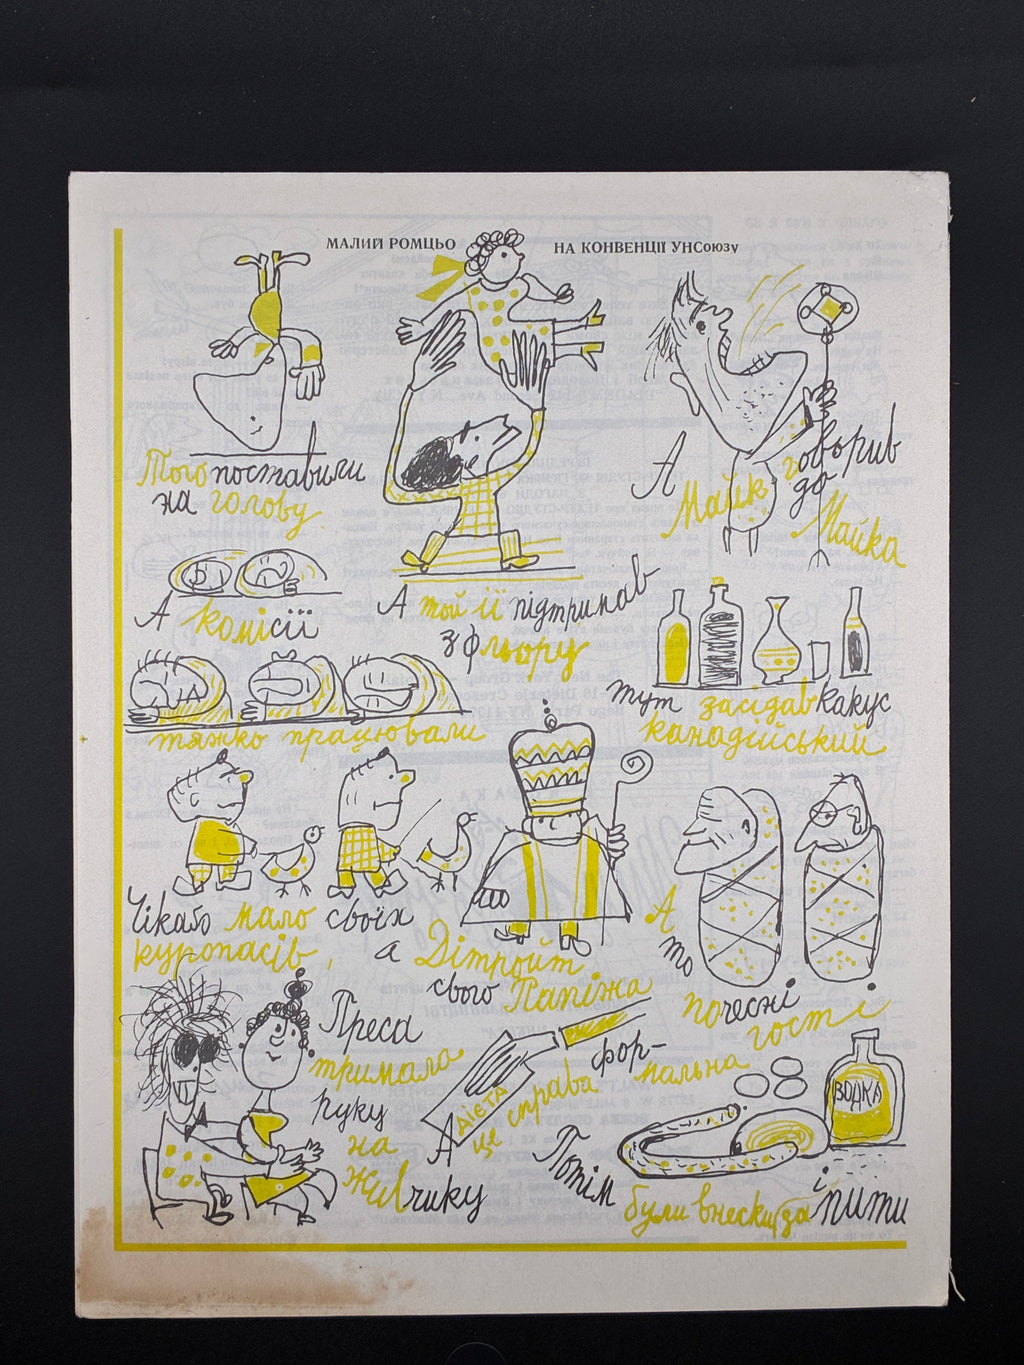 МАЛИЙ РОМЦЬО НА КОНВЕНЦІЇ УНСоюзу
Того поставили
на голову
А той її підтримав
з фльору
А Майк говорив
до Майка
А комісії
тяжко працювали
тут засідав какус
канадійський
Чікаґо мало своїх
куропасів,
а Дітройт
свого Папіжа
А
то
почесні
гості
Преса
тримала
руку
на
живчику
А ДІЄТА
це справа фор-
мальна
ВОДКА
Потім
були внески за і
пити